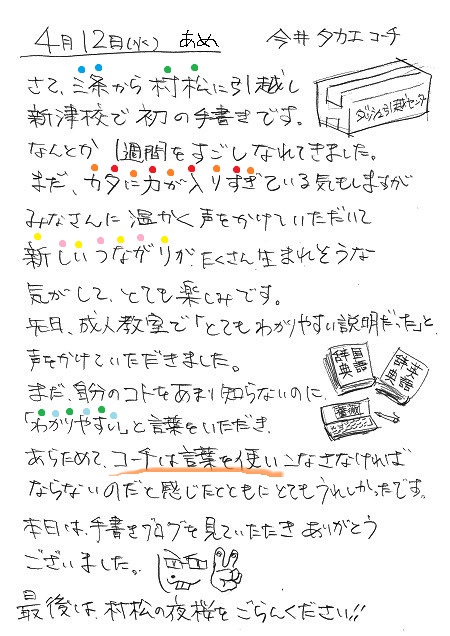 4月12日(水) あめ 今井タカエコーチ
さて、三条から村松に引越し
ダッシュ引越センター
新津校で初の手書きです。
なんとか1週間をすごしなれてきました。
まだ、カタに力が入りすぎている気もしますが
みなさんに温かく声をかけていただいて
新しいつながりが、たくさん生まれそうな
気がして、とても楽しみです。
先日、成人教室で「とてもわかりやすい説明だった」と、
声をかけていただきました。
国語辞典
英語辞典
まだ、自分のコトをあまり知らないのに、
「わかりやすい」と言葉をいただき、
あらためて、コーチは言葉を使いこなさなければ
ならないのだと感じたとともにとてもうれしかったです。
本日は、手書きブログを見ていただきありがとう
ございました。
最後は、村松の夜桜をごらんください!!